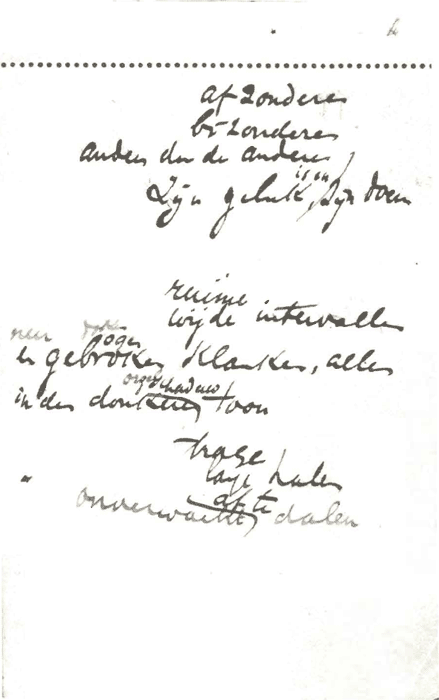 afzonderen
bizonderen
anders dan de anderen
is in
Zijn geluk, Zijn doen
ruime
wijde intervallen
ogen
en gebroken klanken, alles
orgelschaduw
in den donkeren toon
trage
lage halen
af te
onverwachts dalen